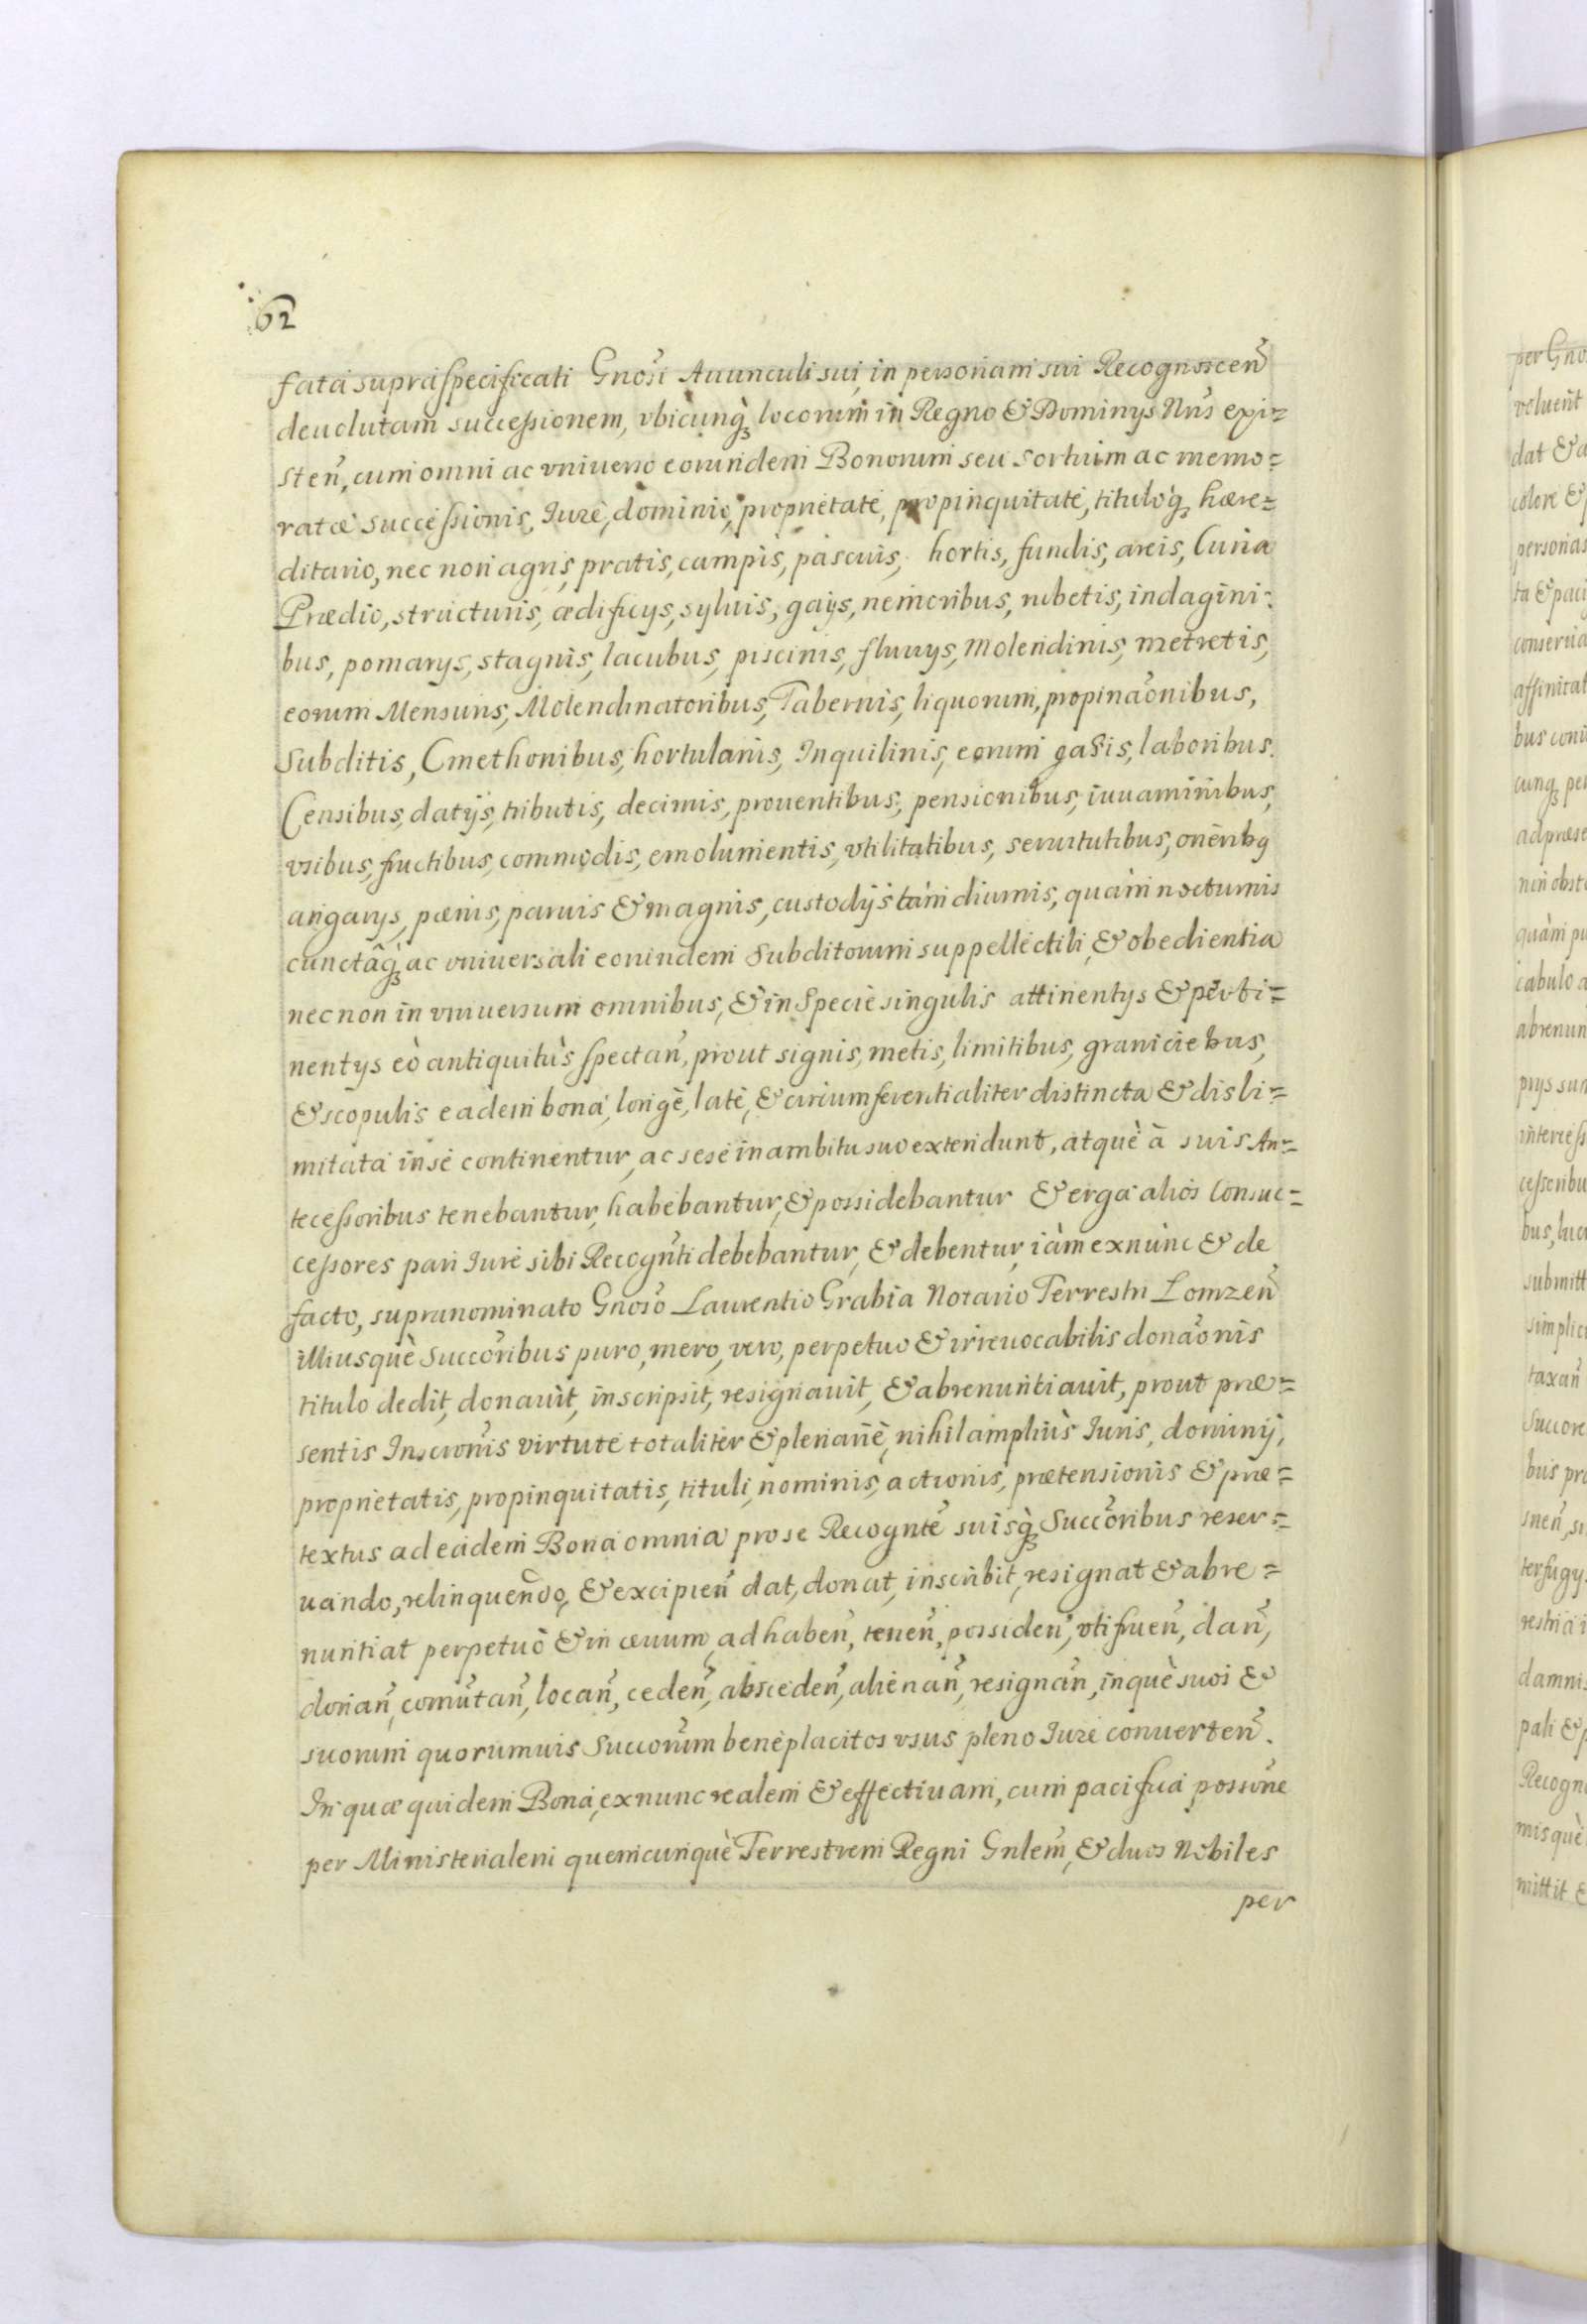 62
fata supraspecificati Gnosi Auunculi sui, in personam sui Recognoscen̄
deuolutam successionem, vbicunq́ȝ locorum in Regno & Dominys Nrīs exi=
sten̄, cum omni ac vniuerso eorundem Bonorum seu sortium ac memo=
ratæ successionis, Iure, dominio, proprietate, propinquitate, titulóqȝ hære=
ditario, nec non agris, pratis, campis, pascuis, hortis, fundis, areis, Curia
Prædio, structuris, ædificys, syluis, gays, nemoribus, rubetis, indagini=
bus, pomarys, stagnis, lacubus, piscinis, fluuys, Molendinis, metretis,
eorum Mensuris, Molendinatoribus, Tabernis, liquorum, propinãonibus,
Subditis, Cmethonibus, hortulanis, Inquilinis, eorum gazis, laboribus.
Censibus, datijs, tributis, decimis, prouentibus, pensionibus, iuuaminibus,
vsibus, fructibus, commodis, emolumentis, vtilitatibus, seruitutibus, oneribq
angarys, pænis, paruis & magnis, custodijs tàm diurnis, quàm nocturnis
cunctâq́ȝ ac vniuersali eorundem Subditorum suppellectili, & obedientia
nec non in vniuersum omnibus, & in Specie singulis attinentys & perti=
nentys eò antiquitùs spectan̄, prout signis, metis, limitibus, graniciebus,
& scopulis eadem bona, longè, latè, & circumferentialiter distincta & disli=
mitata in se continentur, ac sese in ambitu suo extendunt, atquè à suis An=
tecessoribus tenebantur, habebantur, & possidebantur & erga alios Consuc=
cessores pari Iure sibi Recogn̄ti debebantur, & debentur, iàm exnùnc & de
facto, supranominato Gnoso Laurentio Grabia Notario Terrestri Lomzen̄
illiusquè Succōribus puro, mero, vero, perpetuo & irreuocabilis donãonis
titulo dedit, donauit, inscripsit, resignauit, & abrenuntiauit, prout præ=
sentis Inscrōnis virtute totaliter & plenariè, nihil ampliùs Iuris, dominij,
proprietatis, propinquitatis, tituli, nominis, actionis, prætensionis & præ=
textus ad eadem Bona omnia pro se Recognte suisq́ȝ Succōribus reser=
uando, relinquendo, & excipien̄ dat, donat, inscribit, resignat & abre=
nuntiat perpetuò & in æuum, ad haben̄, tenen̄, possiden̄, vtifruen̄, dan̄,
donan̄, comutan̄, locan̄, ceden̄, absceden̄, alienan̄, resignan̄, inquè suos &
suorum quorumuis Succorum beneplacitos vsus pleno Iure conuerten̄.
In quæ quidem Bona, exnunc realem & effectiuam, cum pacifica possōne
per Ministerialem quemcunquè Terrestrem Regni Gnlem̄, & duos Nobiles
per